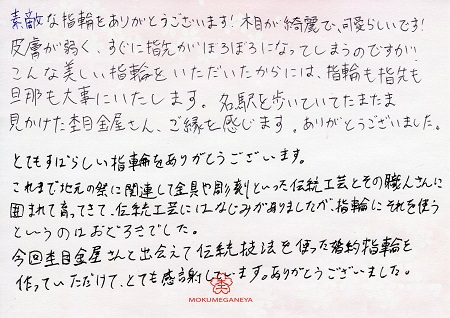 素敵な指輪をありがとうございます！木目が綺麗で、可愛らしいです！
皮膚が弱く、すぐに指先がぼろぼろになってしまうのですが…
こんな美しい指輪をいただいたからには、指輪も指先も
旦那も大事にいたします。名駅を歩いていてたまたま
見かけた杢目金屋さん、ご縁を感じます。ありがとうございました。
とてもすばらしい指輪をありがとうございます。
これまで地元の祭に関連して金具や彫刻といった伝統工芸とその職人さんに
囲まれて育ってきて、伝統工芸にはなじみがありましたが、指輪にそれを使う
というのはおどろきでした。
今回杢目金屋さんと出会えて伝統技法を使った婚約指輪を
作っていただけて、とても感謝しています。ありがとうございました。
MOKUMEGANEYA